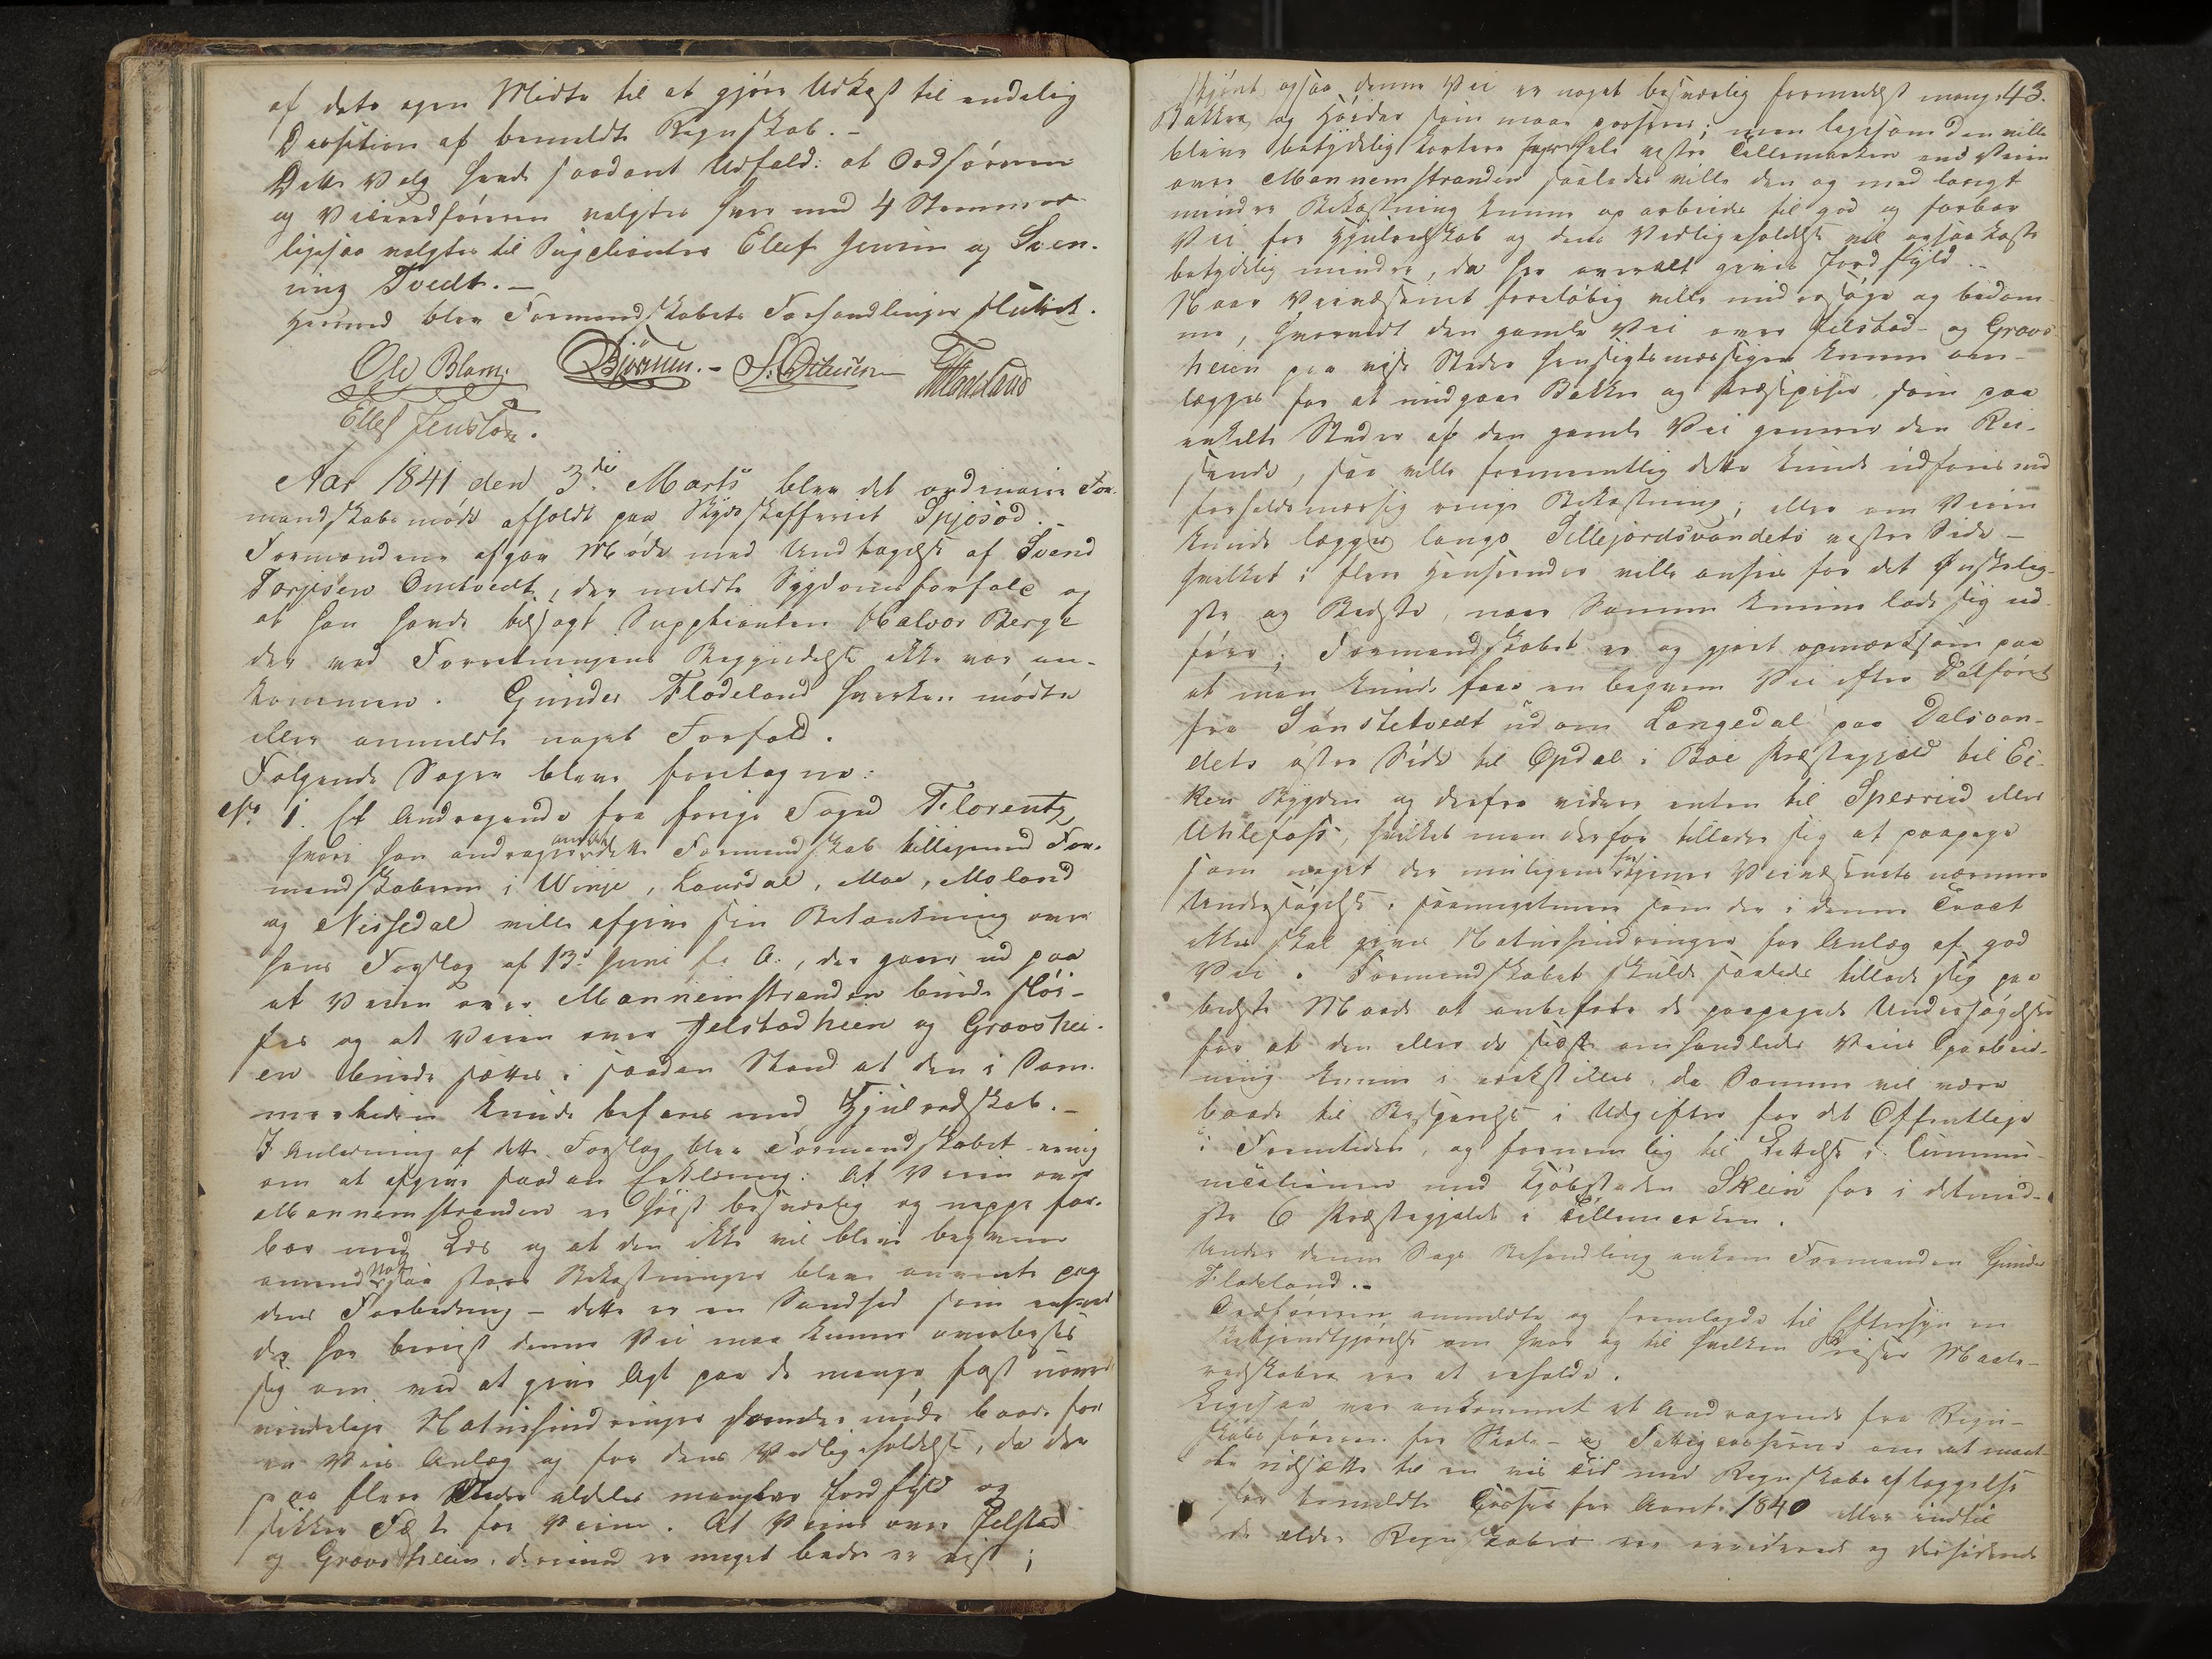 af dets egen Midte til at gjöre Udkast til endelig
Decision af bemeldte Regnskab. -
Dette Valg havde saadant Udfald: at Ordföreren
og Viceordföreren valgtes hver med 4 Stemmer
ligesaa valgtes til Suppleanter Ellef og Sven-
ning Tvedt. -
Hermed blev Formandskabets Forhandlinger sluttet.
Ole Blom. Björnsen. - S. 
Ellef Jenssön.
Aar 1841 den 3die Marts blev det ordinaire For-
mandskabsmöde afholdt paa Skydsskafferiet Spjosod. -
Formændene afgav Möde med Undtagelse af Svend
Torjusen Omtvedt, der meldte Sygdomsforfald og
at han havde tilsagt Suppleanten Halvor Berge
der ved Forretningens Begyndelse ikke var an-
kommen. Gunder Fladeland hverken mödte
eller anmeldte noget Forfald.
Fölgende Sager bleve foretagne:
No 1. Et Andragende fra forige Foged Florentz,
hvori han andrager om at dette Formandskab tilligemed For-
mandskaberne i Winje, Laurdal, Moe, Moland
og Nissedal ville afgive sin Betænkning over
hans Forslag af 13de Juni f. A., der gaaer ud paa
at Veien over Mannemstranden burde slöi-
fes og at Veien over Jelstadheien og Gravshei-
en burde sættes i saadan Stand at den i Som-
merheden kunde befares med Hjulredskab. -
I Anledning af dette Forslag blev Formandskabet enig
om at afgive saadan Erklæring: At Veien over
Mannemstranden er höist besværlig og neppe far-
bar med Læs og at den ikke vil blive bequem
omendskjönt nok saa store Bekostninger bleve anvendte paa
dens Forbedring - dette er en Sandhed som enhver
der har bereist denne Vei maa kunne overbevise
sig om ved at give Agt paa de mange fast uover-
vindelige Naturhindringer som der möde baade for
en Veis Anlæg og for dens Vedligeholdelse, da der
paa flere Steder aldeles mangler Jordfyld og
sikker Fæste for Veien. At Veien over Jelstad
og Gravsheien derimod er meget bedre er vist;
43.
skjönt ogsaa denne Vei er noget besværlig formedelst mange
Bakker og Höider som maae passeres; men ligesom den ville
blive betydelig kortere for hele vestre Tellemarken end Veien
over Mannemstranden saaledes ville den og med langt
mindre Bekostning kunne oparbeides til god og farbar
Vei for Hjulredskab og dens Vedligeholdelse vil ogsaa koste
betydelig mindre, da her overalt gives Jordfyld. -
Naar Veivæsenet foreløbig ville undersöge og bedöm-
me, hvorvidt den gamle Vei over Jelstad- og Gravs-
heien paa visse Steder hensigtsmæssigen kunne om-
lægges for at undgaae Bakker og Præcipiser, som paa
enkelte Steder af den gamle Vei generer den Rei-
sende, saa ville formeentlig dette kunde udföres med
forholdsmæssig ringe Bekostning; eller om Veien
kunde lægges langs Sillejordsvandets vestre Side -
hvilket i flere Henseender ville ansees for det Önskelig-
ste og Bedste, naar Samme kunne lade sig ud-
före; Formandskabet er og gjort opmærksom paa
at man kunde faae en beqvem Vei efter Dalföret
fra Sönstetvedt ud om Langedal paa Dalsvan-
dets östre Side til Opdal i Boe Præstegjeld til Ei-
ken Bygden og derfra videre enten til Sperrud eller
Uhlefoss, hvilket man derfor tillader sig at paapege
som noget der muligens fortjener Veivæsenets nærmere
Undersögelse, saameget mere som der i denne Tract
ikke skal gives Naturhindringer for Anlæg af god
Vei. Formandskabet skulde saaledes tillade sig paa
bedste Maade at anbefale de paapegede Undersögelser
for at den eller de sidst omhandlede Veies Oparbeid-
ning kunne iverkstilles, da Samme vil være
baade til Besparelse i Udgifter for det Offentlige
i Fremtiden, og fornemlig til Lettelse i Commu-
nicationen med Kjöbstaden Skeien for i det mind-
ste 6 Præstegjelde i Tellemarken.
Under denne Sags Behandling ankom Formanden Gunder
Fladeland. -
Ordföreren anmeldte og fremlagde til Eftersyn en
Bekjendtgjörelse om hvor og til hvilken Priser Maale-
redskaber ere at erholde.
Ligesaa var ankommet et Andragende fra Regn-
skabsföreren for Skole- og Fattigcasserne om at maat-
te udsætte til en vis Tid med Regnskabs aflæggelse
for bemeldte Casser for Aaret 1840 eller indtil
de ældre Regnskaber ere reviderede og deciderede